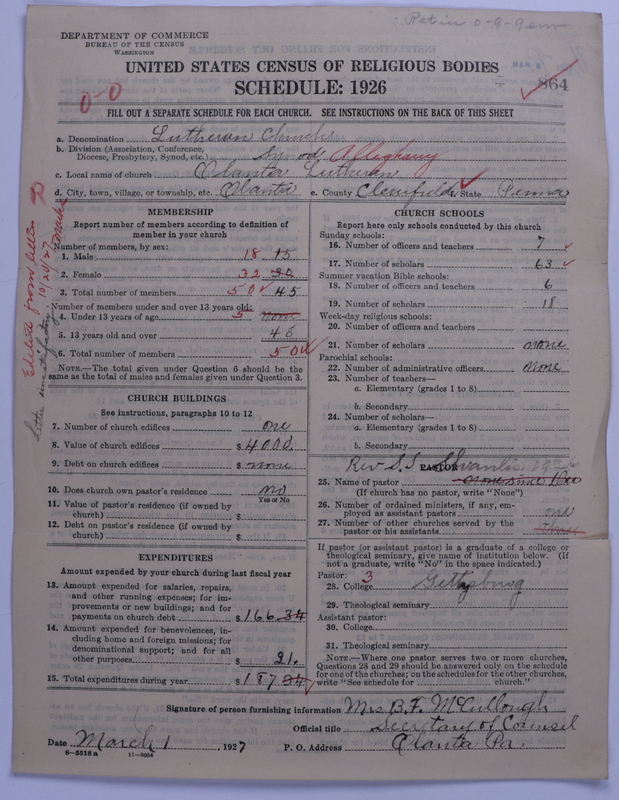 DEPARTMENT OF COMMERCE
BUREAU OF THE CENSUS
WASHINGTON
UNITED STATES CENSUS OF RELIGIOUS BODIES
SCHEDULE: 1926
864
0-0
FILL OUT A SEPARATE SCHEDULE FOR EACH CHURCH. SEE INSTRUCTIONS ON THE BACK OF THIS SHEET
a. Denomination Lutheran Church
b. Division (Association, Conference,
Diocese, Presbytery, Synod, etc.) Synod Alleghany
c. Local name of church Olanta Lutheran
d. City, town, village, or township, etc. Olanta e. County Clearfield State Penna
MEMBERSHIP
Report number of members according to definition of
member in your church
Number of members, by sex:
1. Male 18 15
2. Female 32 30
3. Total number of members 50 45
Number of members under and over 13 years old:
4. Under 13 years of age 5 none
5. 13 years old and over 45
6. Total number of members 50
NOTE.—The total given under Question 6 should be the
same as the total of males and females given under Question 3.
CHURCH BUILDINGS
See instructions, paragraphs 10 to 12
7. Number of church edifices one
8. Value of church edifices $ 4000.
9. Debt on church edifices $ none
10. Does church own pastor's residence no
Yes or No
11. Value of pastor's residence (if owned by
church) $
12. Debt on pastor's residence (if owned by
church) $
EXPENDITURES
Amount expended by your church during last fiscal year
13. Amount expended for salaries, repairs,
and other running expenses; for im-
provements or new buildings; and for
payments on church debt $ 166.34
14. Amount expended for benevolences, in-
cluding home and foreign missions; for
denominational support; and for all
other purposes $ 21.
15. Total expenditures during year $ 187 34
CHURCH SCHOOLS
Report here only schools conducted by this church
Sunday schools:
16. Number of officers and teachers 7
17. Number of scholars 63
Summer vacation Bible schools:
18. Number of officers and teachers 6
19. Number of scholars 18
Week-day religious schools:
20. Number of officers and teachers
21. Number of scholars none
Parochial schools:
22. Number of administrative officers none
23. Number of teachers—
a. Elementary (grades 1 to 8)
b. Secondary
24. Number of scholars—
a. Elementary (grades 1 to 8)
b. Secondary
PASTOR
Rev. S. S. 1926
25. Name of pastor none since Dec
(If church has no pastor, write "None")
26. Number of ordained ministers, if any, em-
ployed as assistant pastors
27. Number of other churches served by the
pastor or his assistants three
If pastor (or assistant pastor) is a graduate of a college or
theological seminary, give name of institution below. (If
not a graduate, write "No" in the space indicated.)
Pastor: 3
28. College Gettysburg
29. Theological seminary
Assistant pastor:
30. College
31. Theological seminary
NOTE.—Where one pastor serves two or more churches,
Questions 28 and 29 should be answered only on the schedule
for one of the churches; on the schedules for the other churches,
write "See schedule for church."
Signature of person furnishing information Mrs B. F. McCullough
Official title Secretary of Counsel
Date March 1, 1927 P. O. Address Olanta Pa.
8-5318a 11-9054
Edited from letter 10/24/27